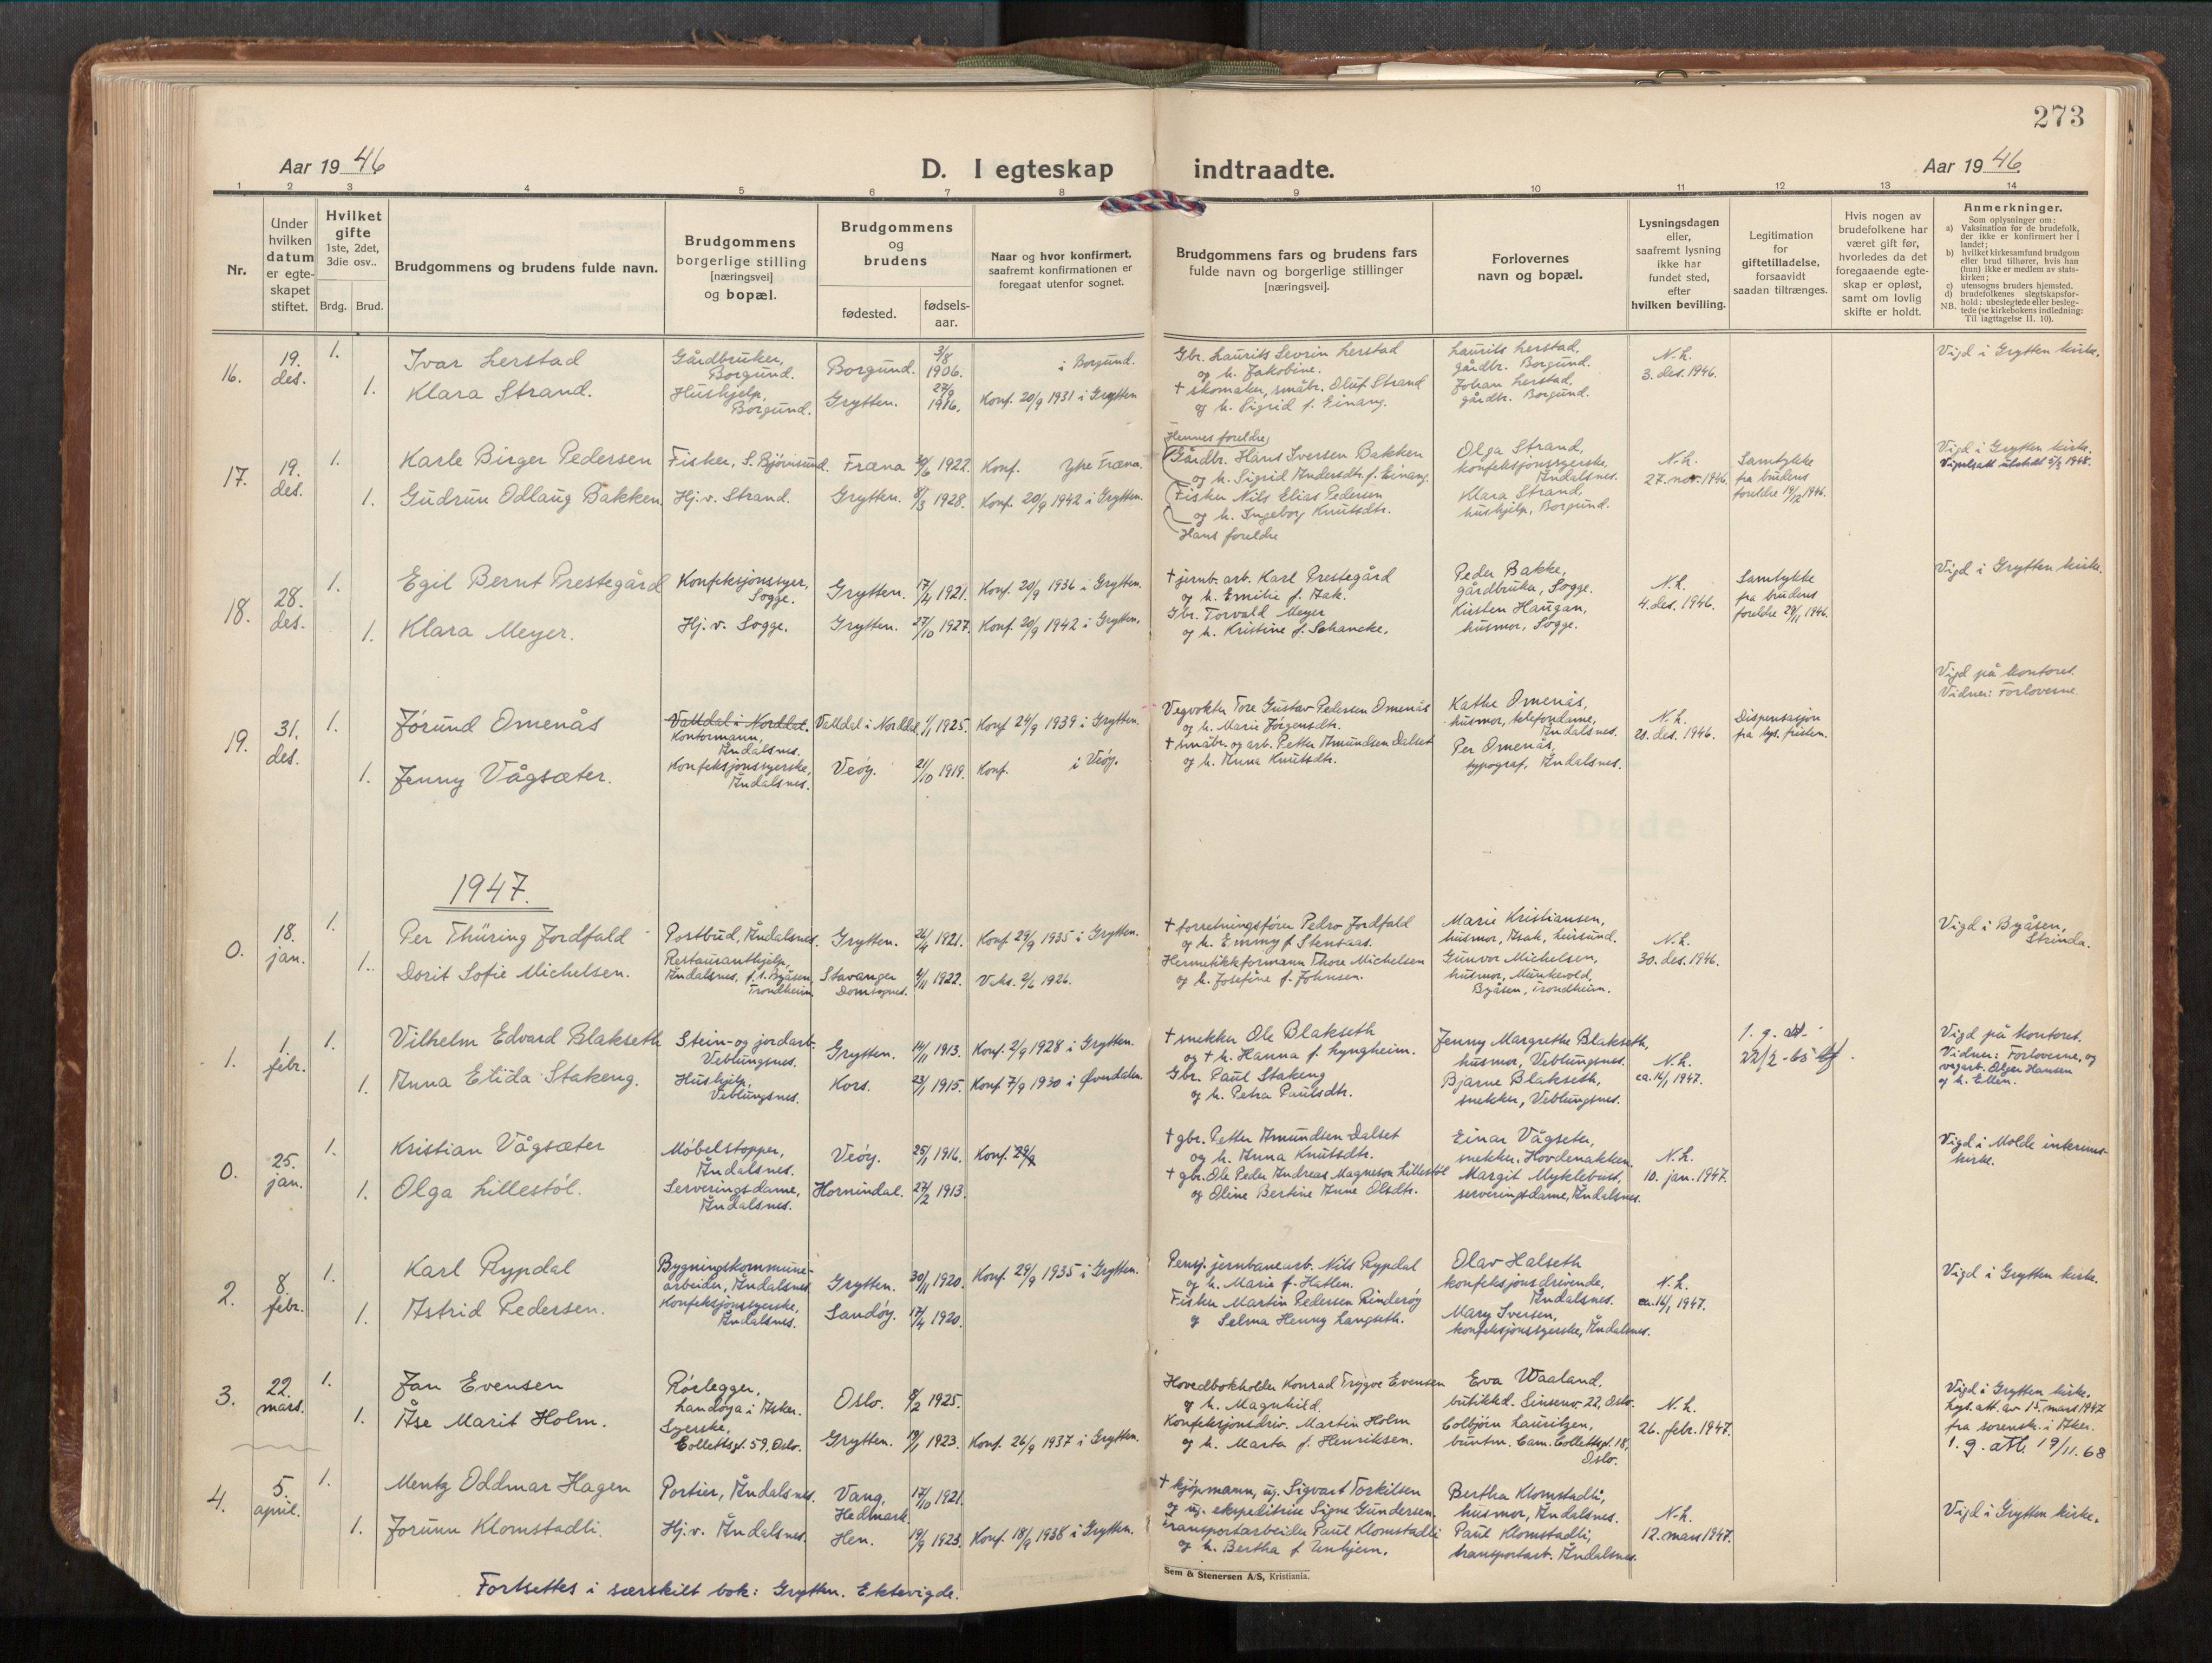 273
Aar 1946
D. I egteskap indtraadte.
Aar 1946.
1 2 3 4 5 6 7 8 9 10 11 12 13 14
Nr.
Under hvilken datum er egteskapet stiftet.
Hvilket gifte
1ste, 2det, 3die osv..
Brdg. Brud.
Brudgommens og brudens fulde navn.
Brudgommens borgerlige stilling [næringsvei] og bopæl.
Brudgommens og brudens
fødested.
fødsels-aar.
Naar og hvor konfirmert, saafremt konfirmationen er foregaat utenfor sognet.
Brudgommens fars og brudens fars fulde navn og borgerlige stillinger [næringsvei].
Forlovernes navn og bopæl.
Lysningsdagen eller, saafremt lysning ikke har fundet sted, efter hvilken bevilling.
Legitimation for giftetilladelse, forsaavidt saadan tiltrænges.
Hvis nogen av brudefolkene har været gift før, hvorledes da det foregaaende egteskap er opløst, samt om lovlig skifte er holdt.
Anmerkninger.
Som oplysninger om:
a) Vaksination for de brudefolk, der ikke er konfirmert her i landet;
b) hvilket kirkesamfund brudgom eller brud tilhører, hvis han (hun) ikke er medlem av statskirken;
c) utensogns bruders hjemsted.
d) brudefolkenes slegtskapsforhold; ubeslegtede eller beslegtede (se kirkebokens indledning:
NB. Til iagttagelse II. 10).
16. 19. des. 1. Ivar Lerstad
Gårdbruker, Borgund.
Borgund. 3/8 1906.
i Borgund.
Gbr. Laurits Sevrin Lerstad
og h. Jakobine.
Laurits Lerstad,
gårdbr. Borgund.
N.h.
3. des. 1946.
Vigd i Grytten kirke.
1. Klara Strand.
Hushjelp, Borgund.
Grytten. 27/9 1916.
Konf. 20/9 1931 i Grytten
† skomaker, småbr. Oluf Strand
og h. Sigrid f. Einang.
Johan Lerstad,
gårdbr. Borgund.
17. 19. des. 1. Karle Birger Pedersen
Fisker, S. Bjørnsund.
Fræna 30/6 1922.
Konf. Ytre Fræna.
Hennes foreldre
Gårdbr. Hans Iversen Bakken
og h. Sigrid Andersdtr. f. Einang.
Olga Strand,
konfeksjonssyerske,
Åndalsnes.
N.h.
27. nov. 1946.
Samtykke
fra brudens
foreldre 19/12 1946.
Vigd i Grytten kirke.
Vigselsatt utstedt 5/2 1948.
1. Gudrun Odlaug Bakken
Hj. v. Strand.
Grytten. 8/3 1928.
Konf. 20/9 1942 i Grytten.
Fisker Nils Elias Pedersen
og h. Ingeborg Knutsdtr.
Hans foreldre
Klara Strand,
hushjelp, Borgund.
18. 28. des. 1. Egil Bernt Prestegård
Konfeksjonssyer,
Sogge.
Grytten. 17/4 1921.
Konf. 20/9 1936 i Grytten.
† jernb. arb. Karl Prestegård
og h. Emilie f. Aak.
Peder Bakke,
gårdbruker, Sogge.
N.h.
4. des. 1946.
Samtykke
fra brudens
foreldre 29/11 1946.
Vigd i Grytten kirke.
1. Klara Meyer.
Hj. v. Sogge.
Grytten. 27/10 1927.
Konf. 20/9 1942 i Grytten.
Gbr. Torvald Meyer
og h. Kristine f. Schancke.
Kirsten Haugan,
husmor, Sogge.
19. 31. des. 1. Jørund Omenås
Valldal i Norddal.
Kontormann,
Åndalsnes.
Valldal i Norddal. 1/1 1925.
Konf. 24/9 1939 i Grytten.
Vegvokter Tore Gustav Pedersen Omenås
og h. Marie Jørgensdtr.
Kathe Omenås,
husmor, telefondame,
Åndalsnes.
N.h.
28. des. 1946.
Dispensasjon
fra lys. fristen.
Vigd på kontoret.
Vidner: Forloverne.
1. Jenny Vågsæter.
Konfeksjonssyerske,
Åndalsnes.
Veøy. 21/10 1919.
Konf. i Veøy.
† småbr. og arb. Petter Amundsen Dalset
og h. Anna Knutsdtr.
Per Omenås,
typograf, Åndalsnes.
1947.
0. 18. jan. 1. Per Thüring Jordfald
Portbud, Åndalsnes.
Grytten. 26/4 1921.
Konf. 29/9 1935 i Grytten.
† forretningsfører Pedro Jordfald
og h. Emmy f. Stensaas.
Marie Kristiansen,
husmor,
N.h.
30. des. 1946.
Vigd i Byåsen,
Strinda.
1. Dorit Sofie Michelsen.
Restauranthjelp,
Åndalsnes, f. t. Byåsen,
Trondheim
Stavanger
Domsognet. 4/11 1922.
Vaks. 2/6 1926.
Hermetikkformann Thore Michelsen
og h. Josefine f. Johnsen.
Gunvor Michelsen,
husmor, Munkvold,
Byåsen, Trondheim.
1. 1. febr. 1. Vilhelm Edvard Blakseth
Stein- og jordarb.
Veblungsnes.
Grytten. 14/11 1913.
Konf. 2/9 1928 i Grytten.
† snekker Ole Blakseth
og † h. Hanna f. Lyngheim.
Jenny Margrethe Blakseth,
husmor, Veblungsnes.
N.h.
ca. 16/1 1947.
1. g. att.
22/2-65
Vigd på kontoret.
Vidner: Forloverne, og
vegarb. Olger Hansen
og h. Ellen.
1. Anna Elida Stakeng.
Hushjelp,
Veblungsnes.
Kors. 23/1 1915.
Konf. 7/9 1930 i Øverdalen.
Gbr. Paul Stakeng
og h. Petra Paulsdtr.
Bjarne Blakseth,
snekker, Veblungsnes.
0. 25. jan. 1. Kristian Vågsæter
Møbelstopper,
Åndalsnes.
Veøy. 25/1 1916.
Konf. 29/9
† gbr. Petter Amundsen Dalset
og h. Anna Knutsdtr.
Einar Vågseter,
snekker, Hovdenakken.
N.h.
10. jan. 1947.
Vigd i Molde interims-
kirke.
1. Olga Lillestøl.
Serveringsdame,
Åndalsnes.
Hornindal. 27/2 1913.
† gbr. Ole Peder Andreas Magneson Lillestøl
og Oline Bertine Anne Olsdtr.
Margit Myklebust,
serveringsdame, Åndalsnes.
2. 8. febr. 1. Karl Rypdal
Bygningskommune-
arbeider, Åndalsnes
Grytten. 30/11 1920.
Konf. 29/9 1935 i Grytten.
Pensj. jernbanearb. Nils Rypdal
og h. Marie f. Hatlen.
Olav Halseth
konfeksjonsdrivende,
Åndalsnes.
N.h.
ca. 16/1 1947.
Vigd i Grytten kirke.
1. Astrid Pedersen.
Konfeksjonssyerske,
Åndalsnes.
Sandøy. 17/4 1920.
Fisker Martin Pedersen Rinderøy
og Selma Henny Langseth.
Mary Iversen,
konfeksjonssyerske, Åndalsnes.
3. 22. mars. 1. Jan Evensen
Rørlegger,
Landøya i Asker.
Oslo. 8/2 1925.
Hovedbokholder Konrad Trygve Evensen
og h. Magnhild.
Eva Waaland,
butikkd. Sinsenv. 22, Oslo.
N.h.
26. febr. 1947.
Vigd i Grytten kirke.
Lys. att. av 15. mars 1947
fra sorensk. i Aker.
1. g. att. 19/11.68
1. Åse Marit Holm.
Syerske,
Collettsgt. 59, Oslo.
Grytten. 19/1 1923.
Konf. 26/9 1937 i Grytten.
Konfeksjonsdriv. Martin Holm
og h. Marta f. Henriksen.
Colbjørn Lauritzen,
buntm. Cam. Collettsgt. 18,
Oslo.
4. 5. april. 1. Mentz Oddmar Hagen
Portier, Åndalsnes.
Vang,
Hedmark 17/10 1921.
† kjøpmann, ug. Sigvart Torkilsen
og ug. ekspeditrise Signe Gundersen.
Bertha Klomstadli,
husmor, Åndalsnes.
N.h.
12. mars 1947.
Vigd i Grytten kirke.
1. Jorunn Klomstadli.
Hj. v. Åndalsnes.
Hen. 19/9 1923.
Konf. 18/9 1938 i Grytten.
Transportarbeider Paul Klomstadli
og h. Bertha f. Unhjem.
Paul Klomstadli,
transportarb. Åndalsnes.
Fortsettes i særskilt bok: Grytten. Ektevigde.
Sem & Stenersen A/S, Kristiania.